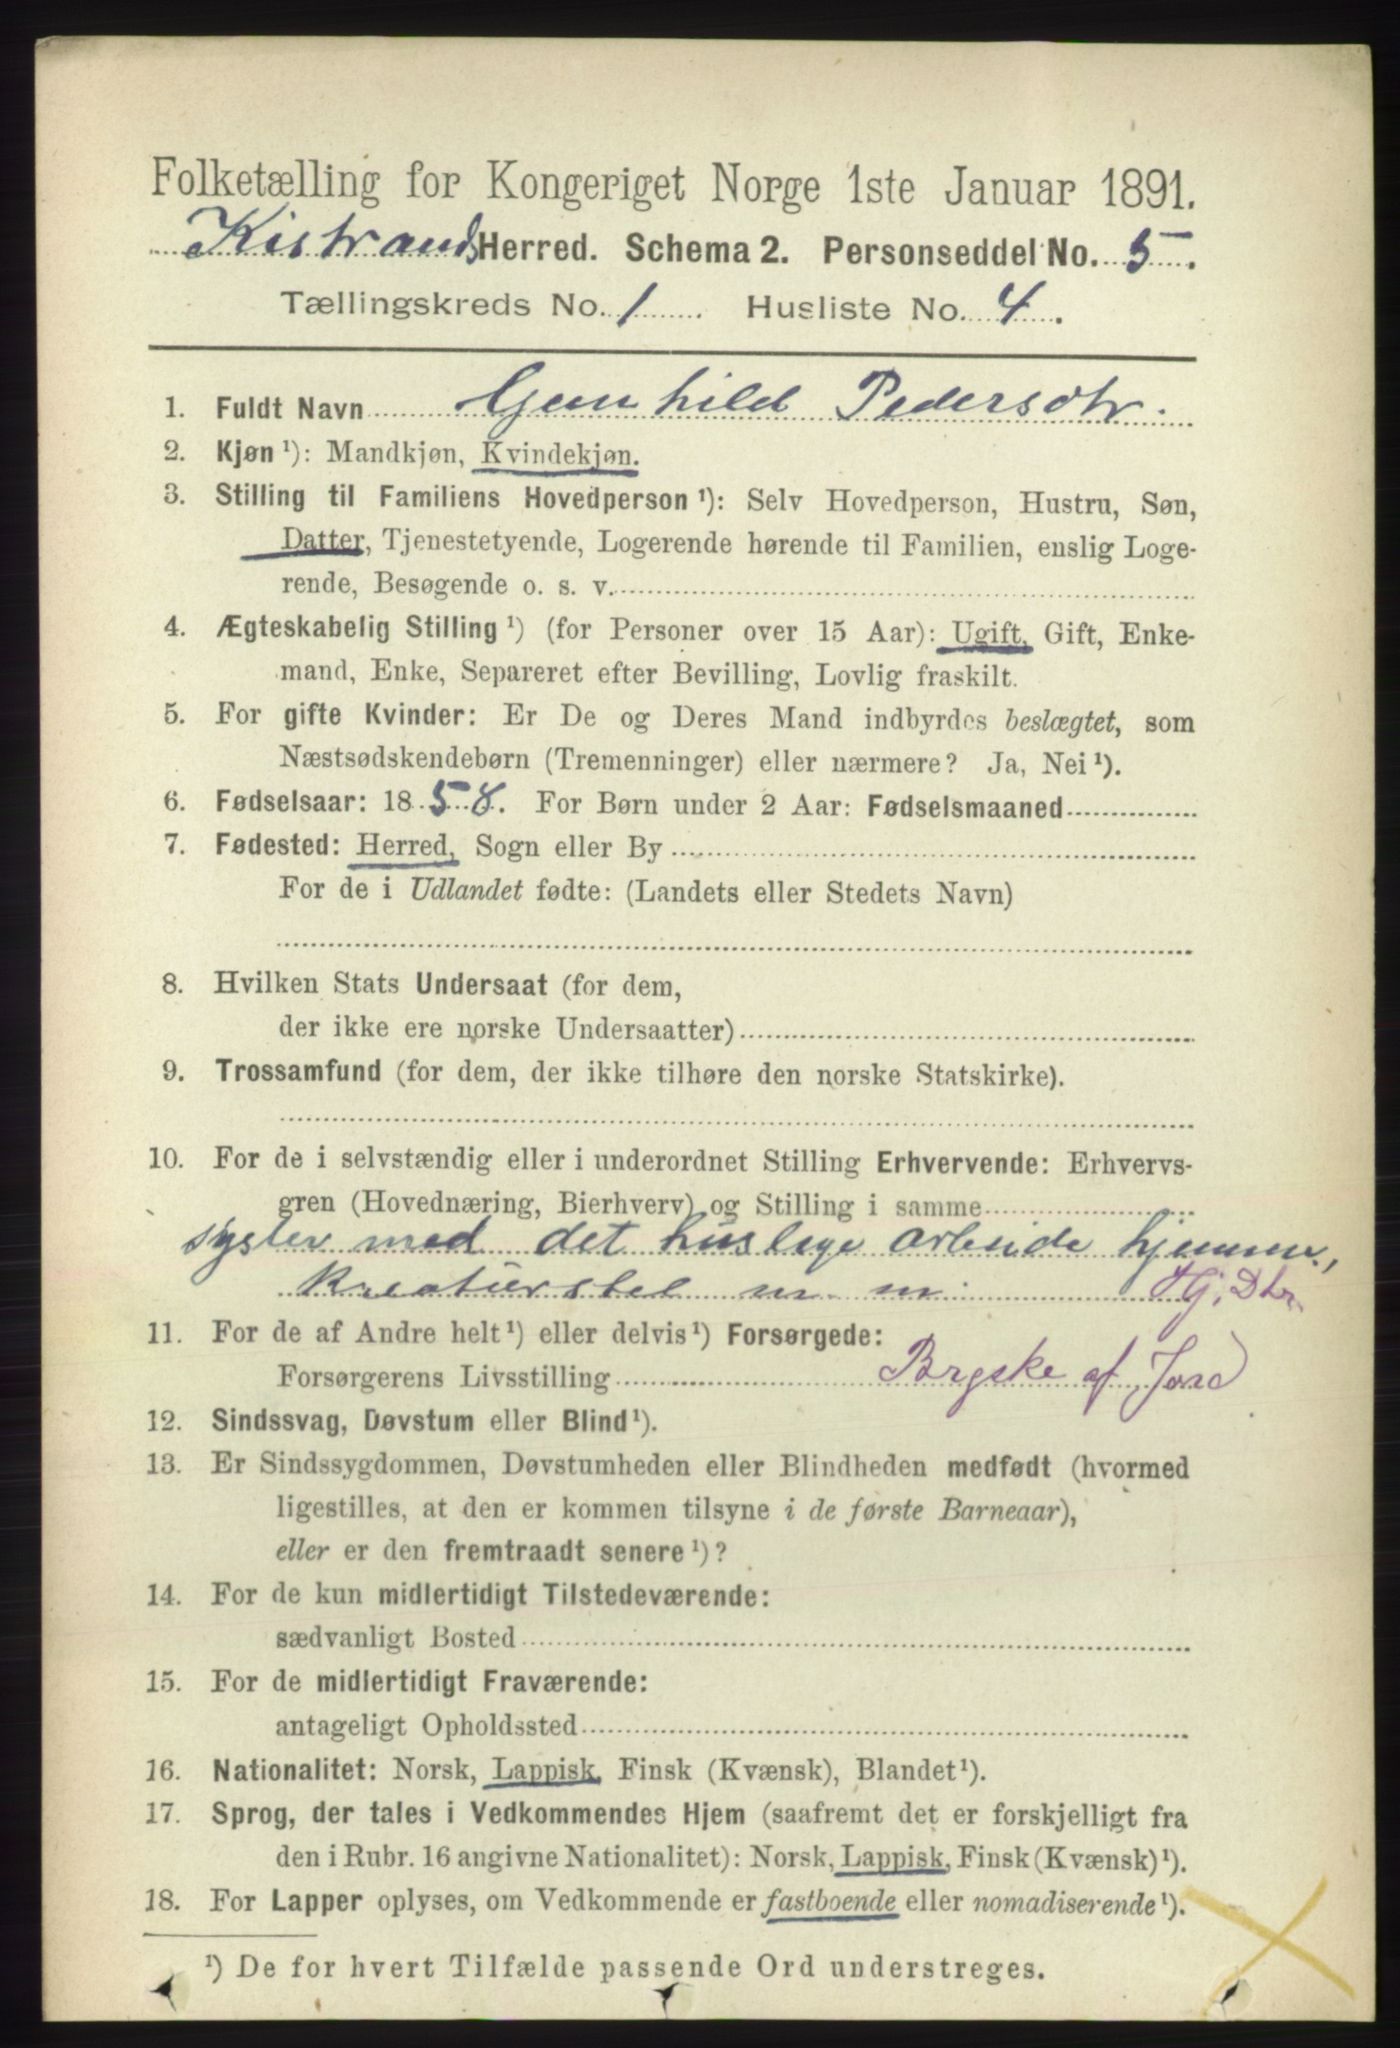 Folketælling for Kongeriget Norge 1ste Januar 1891.
Kistrands Herred. Schema 2. Personseddel No. 5.
Tællingskreds No. 1 Husliste No. 4.
1. Fuldt Navn Gunhild Pedersdtr.
2. Kjøn ¹): Mandkjøn, Kvindekjøn.
3. Stilling til Familiens Hovedperson ¹): Selv Hovedperson, Hustru, Søn,
Datter, Tjenestetyende, Logerende hørende til Familien, enslig Loge-
rende, Besøgende o. s. v.
4. Ægteskabelig Stilling ¹) (for Personer over 15 Aar): Ugift, Gift, Enke-
mand, Enke, Separeret efter Bevilling, Lovlig fraskilt.
5. For gifte Kvinder: Er De og Deres Mand indbyrdes beslægtet, som
Næstsødskendebørn (Tremenninger) eller nærmere? Ja, Nei ¹).
6. Fødselsaar: 1858. For Børn under 2 Aar: Fødselsmaaned
7. Fødested: Herred, Sogn eller By
For de i Udlandet fødte: (Landets eller Stedets Navn)
8. Hvilken Stats Undersaat (for dem,
der ikke ere norske Undersaatter)
9. Trossamfund (for dem, der ikke tilhøre den norske Statskirke).
10. For de i selvstændig eller i underordnet Stilling Erhvervende: Erhvervs-
gren (Hovednæring, Bierhverv) og Stilling i samme
sysler med det huslige arbeide hjemme,
kreaturstel m. m. Hj. Dtr.
11. For de af Andre helt ¹) eller delvis ¹) Forsørgede:
Forsørgerens Livsstilling Brgske af Jord
12. Sindssvag, Døvstum eller Blind ¹).
13. Er Sindssygdommen, Døvstumheden eller Blindheden medfødt (hvormed
ligestilles, at den er kommen tilsyne i de første Barneaar),
eller er den fremtraadt senere ¹)?
14. For de kun midlertidigt Tilstedeværende:
sædvanligt Bosted
15. For de midlertidigt Fraværende:
antageligt Opholdssted
16. Nationalitet: Norsk, Lappisk, Finsk (Kvænsk), Blandet ¹).
17. Sprog, der tales i Vedkommendes Hjem (saafremt det er forskjelligt fra
den i Rubr. 16 angivne Nationalitet): Norsk, Lappisk, Finsk (Kvænsk) ¹).
18. For Lapper oplyses, om Vedkommende er fastboende eller nomadiserende ¹).
¹) De for hvert Tilfælde passende Ord understreges.